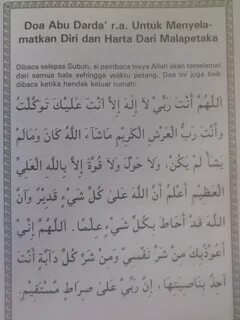 Doa Abu Darda' r.a. Untuk Menyela-
matkan Diri dan Harta Dari Malapetaka
Dibaca selepas Subuh, si pembaca insya Allah akan terselamat
dari semua bala sehingga waktu petang. Doa ini juga baik
dibaca ketika hendak keluar rumah:
اَللَّهُمَّ أَنْتَ رَبِّيْ لَا إِلَهَ إِلَّا أَنْتَ عَلَيْكَ تَوَكَّلْتُ
وَأَنْتَ رَبُّ الْعَرْشِ الْكَرِيْمِ مَاشَآءَ اللهُ كَانَ وَمَالَمْ
يَشَأْ لَمْ يَكُنْ، وَلَا حَوْلَ وَلَا قُوَّةَ إِلَّا بِاللهِ الْعَلِيِّ
الْعَظِيْمِ أَعْلَمُ أَنَّ اللهَ عَلَىٰ كُلِّ شَيْءٍ قَدِيْرٌ وَأَنَّ
اللهَ قَدْ أَحَاطَ بِكُلِّ شَيْءٍ عِلْمًا. اَللَّهُمَّ إِنِّيْ
أَعُوْذُبِكَ مِنْ شَرِّ نَفْسِيْ وَمِنْ شَرِّ كُلِّ دَآبَّةٍ أَنْتَ
آخِذٌ بِنَاصِيَتِهَا، إِنَّ رَبِّيْ عَلَىٰ صِرَاطٍ مُسْتَقِيْمٍ.